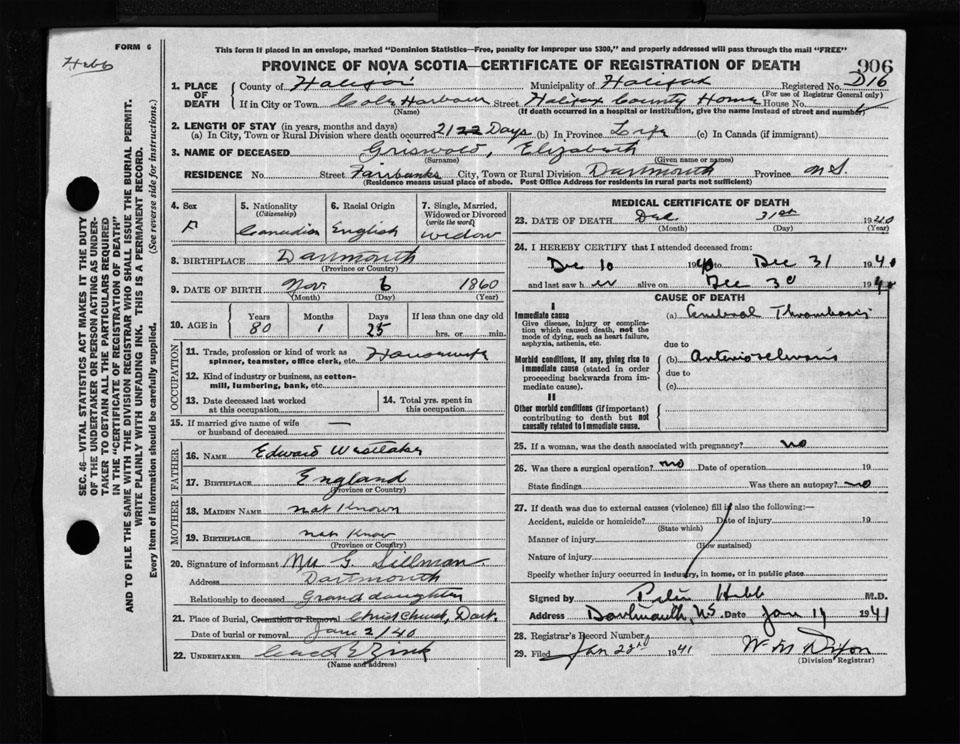 FORM 6
Hebb
This form if placed in an envelope, marked "Dominion Statistics—Free, penalty for improper use $300," and properly addressed will pass through the mail "FREE"
PROVINCE OF NOVA SCOTIA—CERTIFICATE OF REGISTRATION OF DEATH
906
1. PLACE OF DEATH County of Halifax Municipality of Halifax Registered No. D16
(For use of Registrar General only)
If in City or Town Cole Harbour Street Halifax County Home House No.
(Name) (If death occurred in a hospital or institution, give the name instead of street and number)
2. LENGTH OF STAY (in years, months and days)
(a) In City, Town or Rural Division where death occurred 21 Days (b) In Province Life (c) In Canada (if immigrant)
3. NAME OF DECEASED Griswold, Elizabeth
(Surname) (Given name or names)
RESIDENCE No. Street Fairbanks City, Town or Rural Division Dartmouth Province N.S.
(Residence means usual place of abode. Post Office Address for residents in rural parts not sufficient)
4. Sex F
5. Nationality (Citizenship) Canadian
6. Racial Origin English
7. Single, Married, Widowed or Divorced (write the word) Widow
8. BIRTHPLACE Dartmouth
(Province or Country)
9. DATE OF BIRTH Nov 6 1860
(Month) (Day) (Year)
10. AGE in Years 80 Months 1 Days 25 If less than one day old hrs. or min.
OCCUPATION
11. Trade, profession or kind of work as spinner, teamster, office clerk, etc. Housewife
12. Kind of industry or business, as cotton-mill, lumbering, bank, etc.
13. Date deceased last worked at this occupation
14. Total yrs. spent in this occupation
15. If married give name of wife or husband of deceased —
FATHER
16. NAME Edward Westlake
17. BIRTHPLACE England
(Province or Country)
MOTHER
18. MAIDEN NAME not Known
19. BIRTHPLACE not Know
(Province or Country)
20. Signature of informant Mrs G. Sellman
Address Dartmouth
Relationship to deceased Grand daughter
21. Place of Burial, Cremation or Removal Christ Church, Dart.
Date of burial or removal Jan 2/40
22. UNDERTAKER Zink
(Name and address)
MEDICAL CERTIFICATE OF DEATH
23. DATE OF DEATH Dec 31st 1940
(Month) (Day) (Year)
24. I HEREBY CERTIFY that I attended deceased from:
Dec 10 1940 to Dec 31 1940
and last saw her alive on Dec 30 1940
CAUSE OF DEATH
I
Immediate cause (a) Cerebral Thrombosis
Give disease, injury or complication which caused death, not the mode of dying, such as heart failure, asphyxia, asthenia, etc.
due to
Morbid conditions, if any, giving rise to immediate cause (stated in order proceeding backwards from immediate cause).
(b) Arteriosclerosis
due to
(c)
II
Other morbid conditions (if important) contributing to death but not causally related to immediate cause.
25. If a woman, was the death associated with pregnancy? no
26. Was there a surgical operation? no Date of operation 19
State findings Was there an autopsy? no
27. If death was due to external causes (violence) fill in also the following:—
Accident, suicide or homicide? Date of injury 19
(State which)
Manner of injury
(How sustained)
Nature of injury
Specify whether injury occurred in industry, in home, or in public place
Signed by Hebb M.D.
Address Dartmouth, N.S. Date Jan 11 1941
28. Registrar's Record Number
29. Filed Jan 22nd 1941 W M Dixon
(Division Registrar)
SEC. 46—VITAL STATISTICS ACT MAKES IT THE DUTY
OF THE UNDERTAKER OR PERSON ACTING AS UNDER-
TAKER TO OBTAIN ALL THE PARTICULARS REQUIRED
IN THE "CERTIFICATE OF REGISTRATION OF DEATH"
AND TO FILE THE SAME WITH THE DIVISION REGISTRAR WHO SHALL ISSUE THE BURIAL PERMIT.
WRITE PLAINLY WITH UNFADING INK. THIS IS A PERMANENT RECORD.
Every item of information should be carefully supplied. (See reverse side for instructions.)